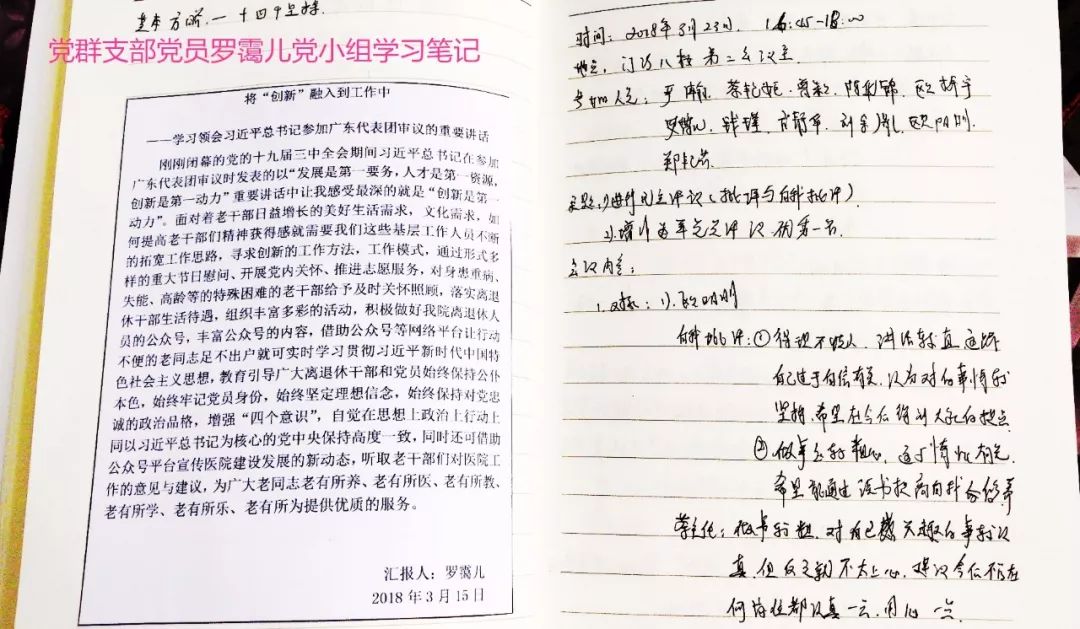 基本方略.一十四个坚持.
党群支部党员罗霭儿党小组学习笔记
将“创新”融入到工作中
——学习领会习近平总书记参加广东代表团审议的重要讲话
刚刚闭幕的党的十九届三中全会期间习近平总书记在参加
广东代表团审议时发表的以“发展是第一要务，人才是第一资源，
创新是第一动力”重要讲话中让我感受最深的就是“创新是第一
动力”。面对着老干部日益增长的美好生活需求，文化需求，如
何提高老干部们精神获得感就需要我们这些基层工作人员不断
的拓宽工作思路，寻求创新的工作方法，工作模式，通过形式多
样的重大节日慰问、开展党内关怀、推进志愿服务，对身患重病、
失能、高龄等的特殊困难的老干部给予及时关怀照顾，落实离退
休干部生活待遇，组织丰富多彩的活动，积极做好我院离退休人
员的公众号，丰富公众号的内容，借助公众号等网络平台让行动
不便的老同志足不出户就可实时学习贯彻习近平新时代中国特
色社会主义思想，教育引导广大离退休干部和党员始终保持公仆
本色，始终牢记党员身份，始终坚定理想信念，始终保持对党忠
诚的政治品格，增强“四个意识”，自觉在思想上政治上行动上
同以习近平总书记为核心的党中央保持高度一致，同时还可借助
公众号平台宣传医院建设发展的新动态，听取老干部们对医院工
作的意见与建议，为广大老同志老有所养、老有所医、老有所教、
老有所学、老有所乐、老有所为提供优质的服务。
汇报人：罗霭儿
2018 年 3 月 15 日
时间：2018年3月23日. 16:45-18:00
地点：门诊八楼第二会议室
参加人员：
主题：1)进行民主评议（批评与自我批评）
会议内容：
自我批评：①
自己过于自信有关.认为对的事情就
坚持.希望在今后得到大家的提点
希望能通过读书提高自我的修养
真.但反之就不太上心.建议今后不论在
何岗位都认真一点.用心一点